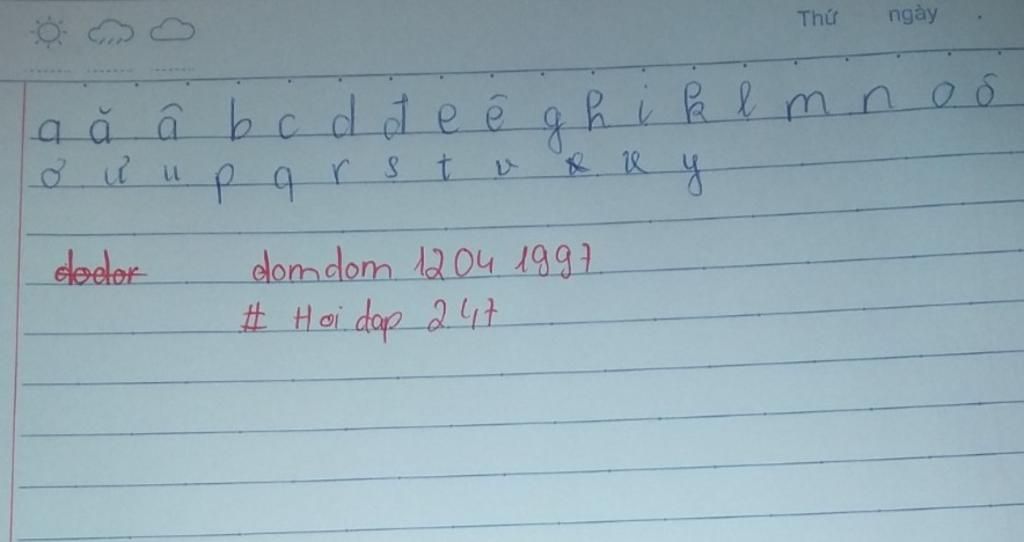 Thứ ngày .
a ă â b c d đ e ê g h i k l m n o ô
ơ ư u p q r s t v x x y
dodor domdom 1204 1997
# Hoi dap 247